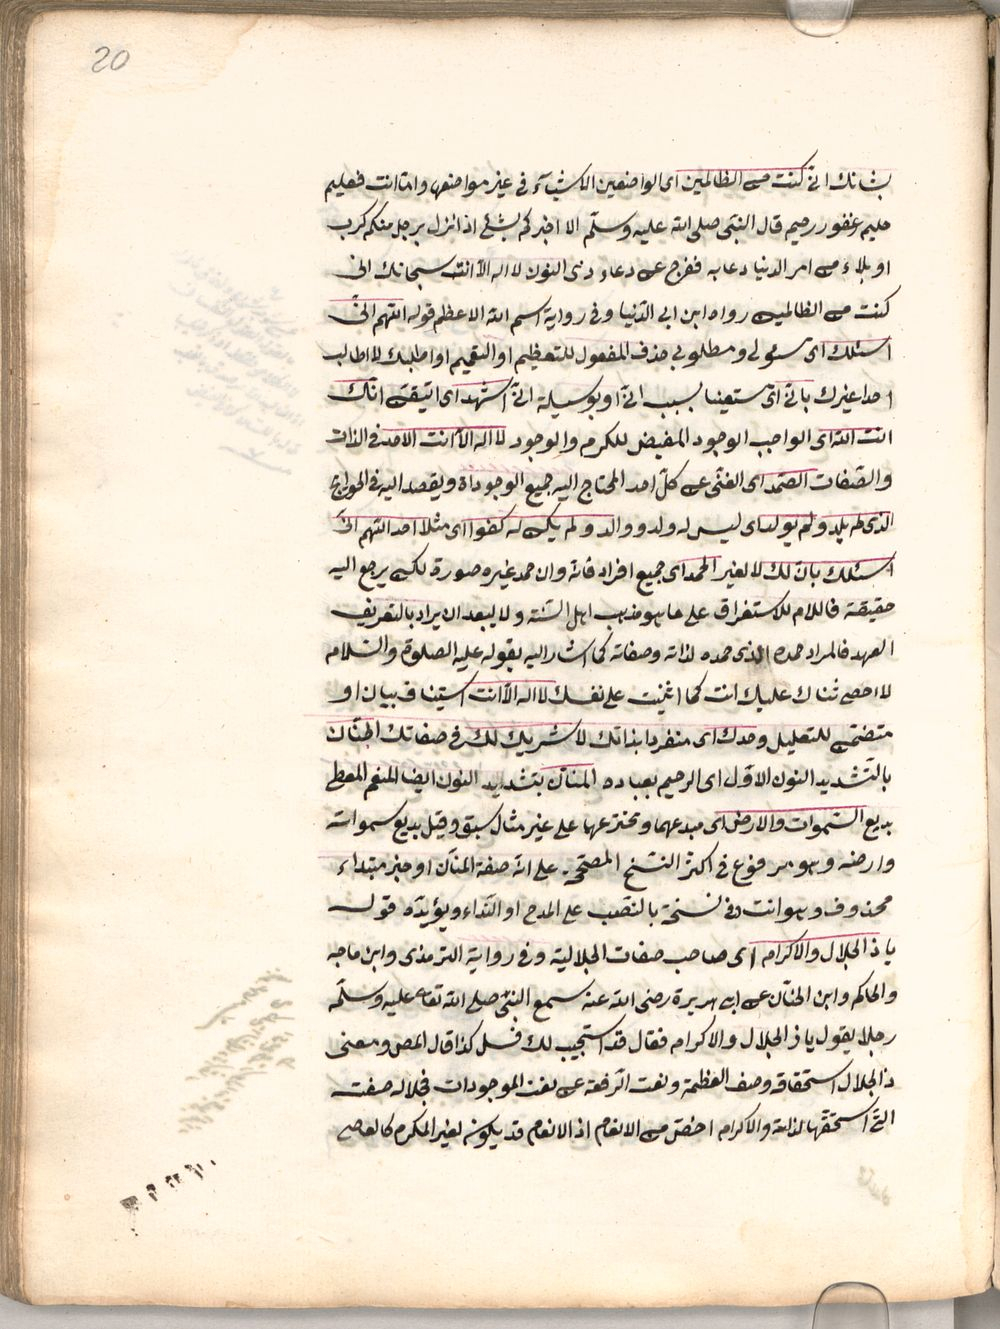 20
بشانك انى كنت من الظالمين اى الواضعين الاشياء فى غير مواضعها وامّا انت فعليم
حليم غفور رحيم قال النبى صلى الله عليه وسلم الا اخبركم بشئ اذا نزل برجل منكم كرب
او بلاء من امر الدنيا دعا به ففرج عنه دعاء ذى النون لا اله الا انت سبحانك انى
كنت من الظالمين رواه ابن ابى الدنيا وفى رواية اسم الله الاعظم قوله اللهم انى
اسئلك اى مسئولى ومطلوبى حذف المفعول للتعظيم او التعميم او اطلبك لا اطالب
احدا غيرك بانى اى مستعينا بسبب انى او بوسيلة انى اشهد اى اتيقن انك
انت الله اى الواجب الوجود المفيض للكرم والوجود لا اله الا انت الاحد فى الذات
والصفات الصمد اى الغنى عن كل احد المحتاج اليه جميع الوجوداة ويقصد اليه فى الحوائج
الذى لم يلد ولم يولد اى ليس له ولد ووالد ولم يكن له كفوا اى مثلا احد اللهم انى
اسئلك بان لك لا لغير الحمد اى جميع افراد فانه وان حمد غيره صورة لكن يرجع اليه
حقيقة فاللام للاستغراق على ما هو مذهب اهل السنة ولا يبعد ان يراد بالتعريف
العهد فالمراد حمده الذى حمده لذاته وصفاته كما اشار اليه بقوله عليه الصلوة والسلام
لا احصى ثناك عليك انت كما اثنيت على نفسك لا اله الا انت استيناف بيان او
متضمن للتعليل وحدك اى منفردا بذاتك لا شريك لك فى صفاتك الحنّان
بالتشديد النون الاوّل اى الرحيم بعباده المنّان بتشديد النون ايضا المنعم المعطى
بديع السموات والارض اى مبدعهما ومخترعها على غير مثال سبق وقيل بديع سمواته
وارضه وهو مرفوع فى اكثر النسخ المصححة على انه صفة المنّان او خبر مبتداء
محذوف وهو انت وفى نسخة بالنصب على المدح او النداء ويؤيّده قوله
يا ذا الجلال والاكرام اى صاحب صفات الجلالية وفى رواية الترمذى وابن ماجه
والحاكم وابن الحنان عن ابى هريرة رضى الله عنه سمع النبى صلى الله تعا عليه وسلم
رجلا يقول يا ذا الجلال والاكرام فقال قد استجيب لك فسل كذا قال المص ومعنى
ذا الجلال استحقاقه وصف العظمة ونعت الرفعة عن نعت الموجودات فجلاله صفت
التى استحقها لذاته والاكرام اخص من الانعام اذ الانعام قد يكون لغير المكرم كالعاصى